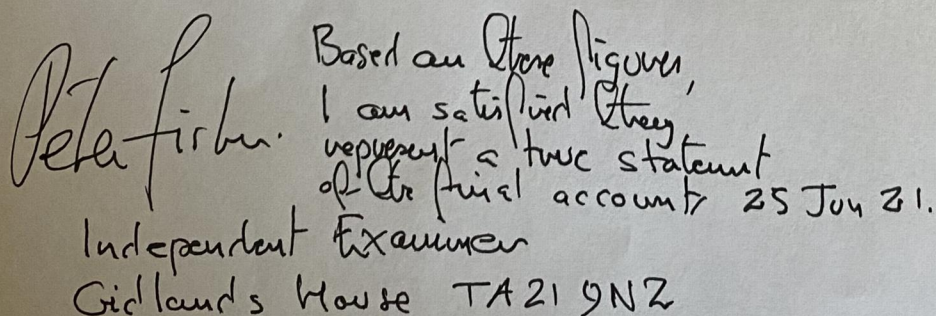 Peter Fisher.
Based on these figures,
I am satisfied they
represent a true statement
of the final accounts 25 Jun 21.
Independent Examiner
Gidlands House TA21 9NZ